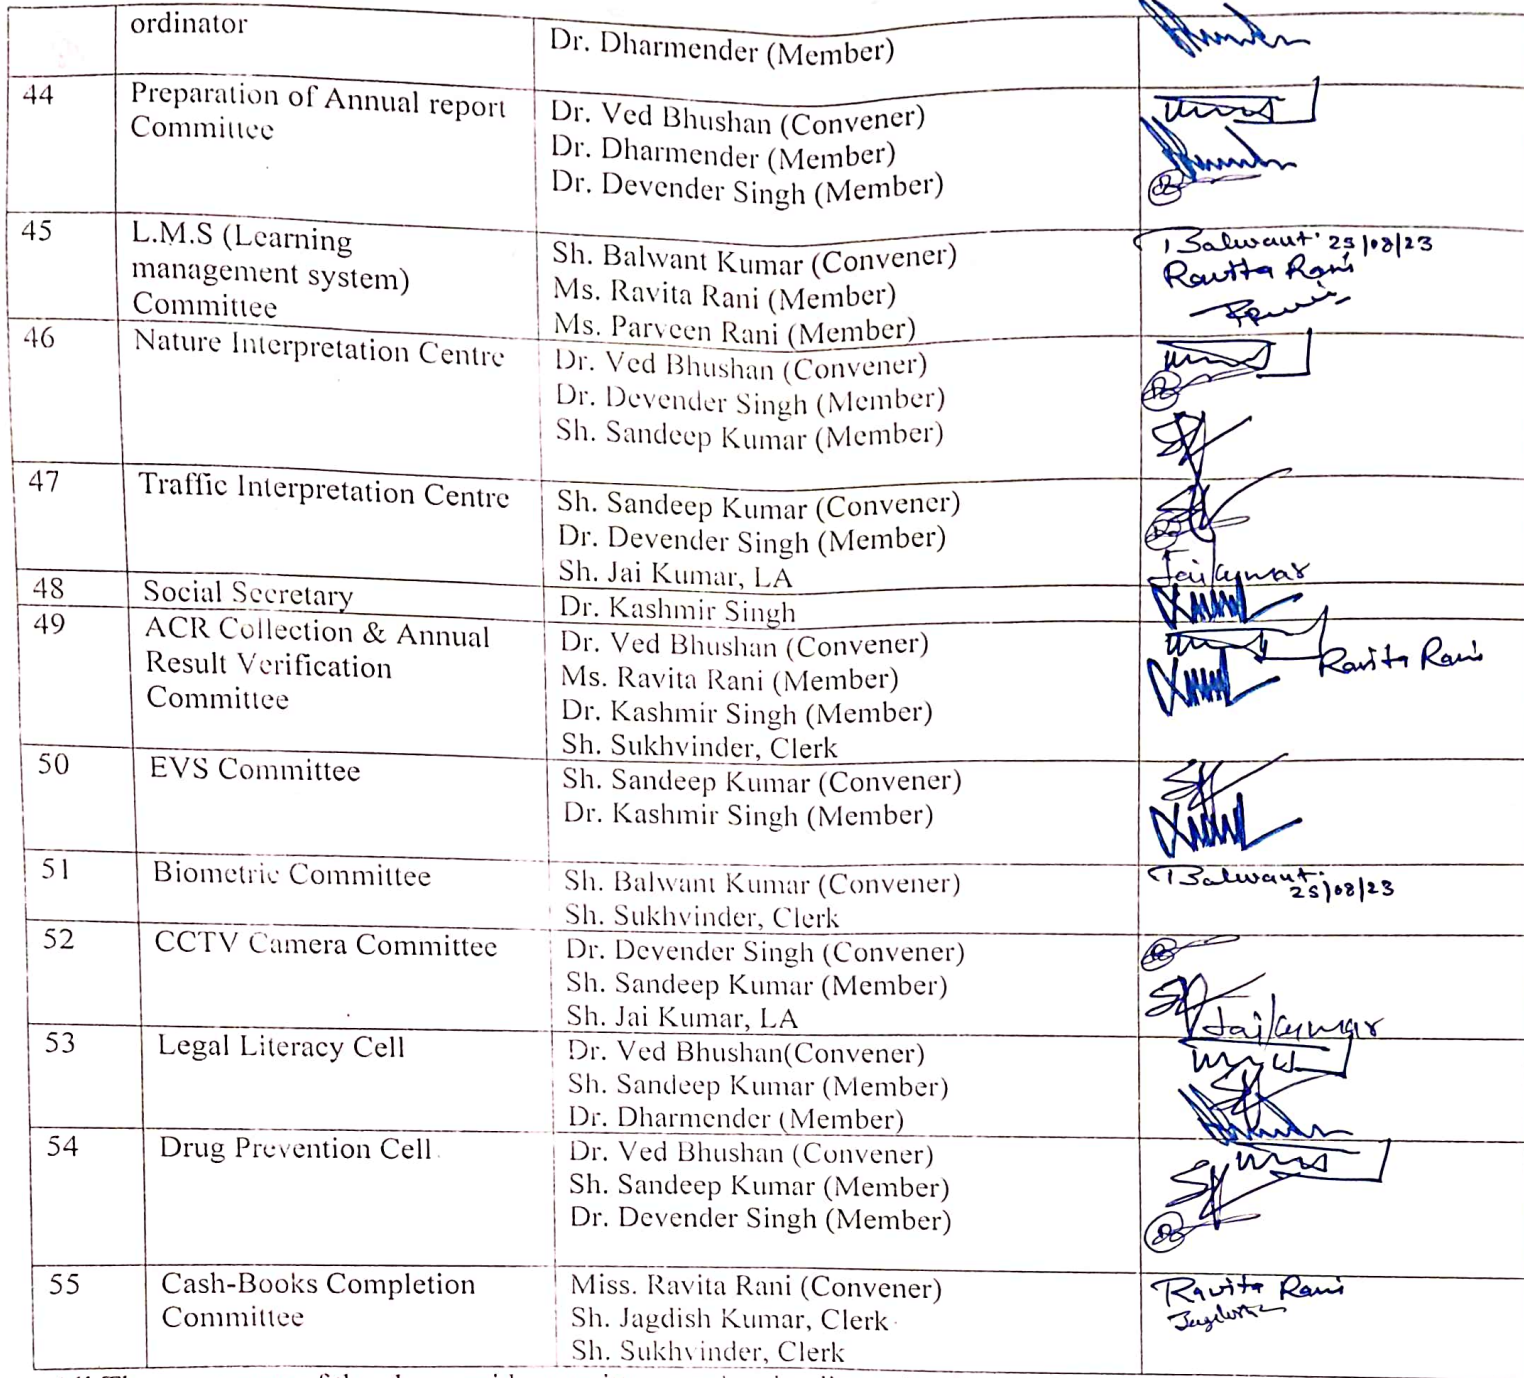 ordinator
Dr. Dharmender (Member)
44
Preparation of Annual report
Committee
Dr. Ved Bhushan (Convener)
Dr. Dharmender (Member)
Dr. Devender Singh (Member)
45
L.M.S (Learning
management system)
Committee
Sh. Balwant Kumar (Convener)
Ms. Ravita Rani (Member)
Ms. Parveen Rani (Member)
Balwant 25/08/23
Ravita Rani
46
Nature Interpretation Centre
Dr. Ved Bhushan (Convener)
Dr. Devender Singh (Member)
Sh. Sandeep Kumar (Member)
47
Traffic Interpretation Centre
Sh. Sandeep Kumar (Convener)
Dr. Devender Singh (Member)
Sh. Jai Kumar, LA
Jai Kumar
48
Social Secretary
Dr. Kashmir Singh
49
ACR Collection & Annual
Result Verification
Committee
Dr. Ved Bhushan (Convener)
Ms. Ravita Rani (Member)
Dr. Kashmir Singh (Member)
Sh. Sukhvinder, Clerk
Ravita Rani
50
EVS Committee
Sh. Sandeep Kumar (Convener)
Dr. Kashmir Singh (Member)
51
Biometric Committee
Sh. Balwant Kumar (Convener)
Sh. Sukhvinder, Clerk
Balwant
25/08/23
52
CCTV Camera Committee
Dr. Devender Singh (Convener)
Sh. Sandeep Kumar (Member)
Sh. Jai Kumar, LA
Jai Kumar
53
Legal Literacy Cell
Dr. Ved Bhushan(Convener)
Sh. Sandeep Kumar (Member)
Dr. Dharmender (Member)
54
Drug Prevention Cell
Dr. Ved Bhushan (Convener)
Sh. Sandeep Kumar (Member)
Dr. Devender Singh (Member)
55
Cash-Books Completion
Committee
Miss. Ravita Rani (Convener)
Sh. Jagdish Kumar, Clerk
Sh. Sukhvinder, Clerk
Ravita Rani